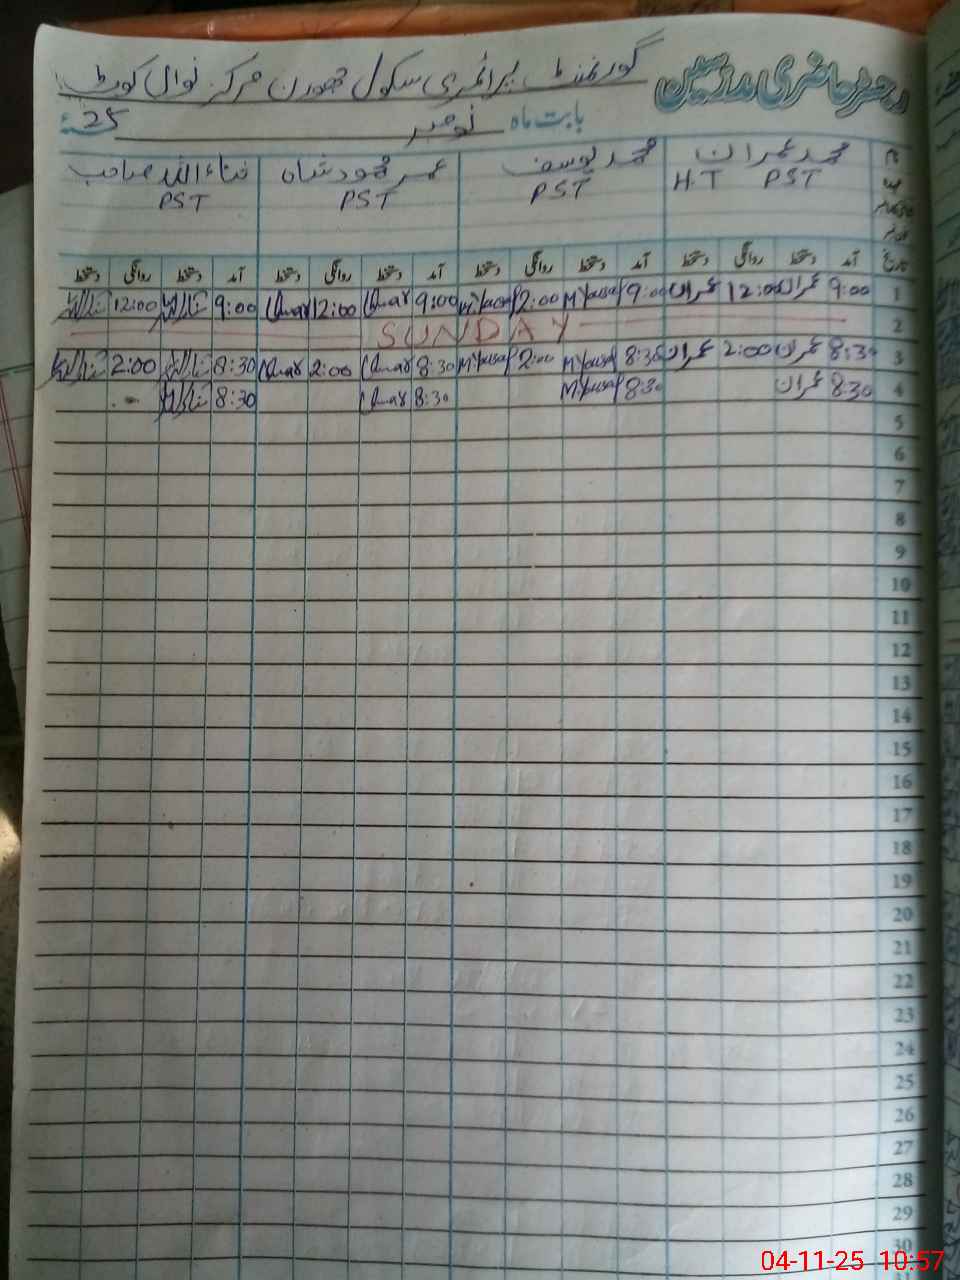 رجسٹر حاضری مدرسین
گورنمنٹ پرائمری سکول جھورن مرکز نوال کورٹ
بابت ماہ نومبر 25ء
محمد عمران محمد یوسف عمر محمود شاہ ثناء اللہ صاحب
H.T PST PST PST PST
تاریخ آمد دستخط روانگی دستخط آمد دستخط روانگی دستخط آمد دستخط روانگی دستخط آمد دستخط روانگی دستخط
1 9:00 عمران 12:00 عمران 9:00 M.Yousaf 12:00 M.Yousaf 9:00 Umar 12:00 Umar 9:00 ثناءاللہ 12:00 ثناءاللہ
2 SUNDAY
3 8:30 عمران 2:00 عمران 8:30 M.Yousaf 2:00 M.Yousaf 8:30 Umar 2:00 Umar 8:30 ثناءاللہ 2:00 ثناءاللہ
4 8:30 عمران 8:30 M.Yousaf 8:30 Umar 8:30 ثناءاللہ
5
6
7
8
9
10
11
12
13
14
15
16
17
18
19
20
21
22
23
24
25
26
27
28
29
30
04-11-25 10:57